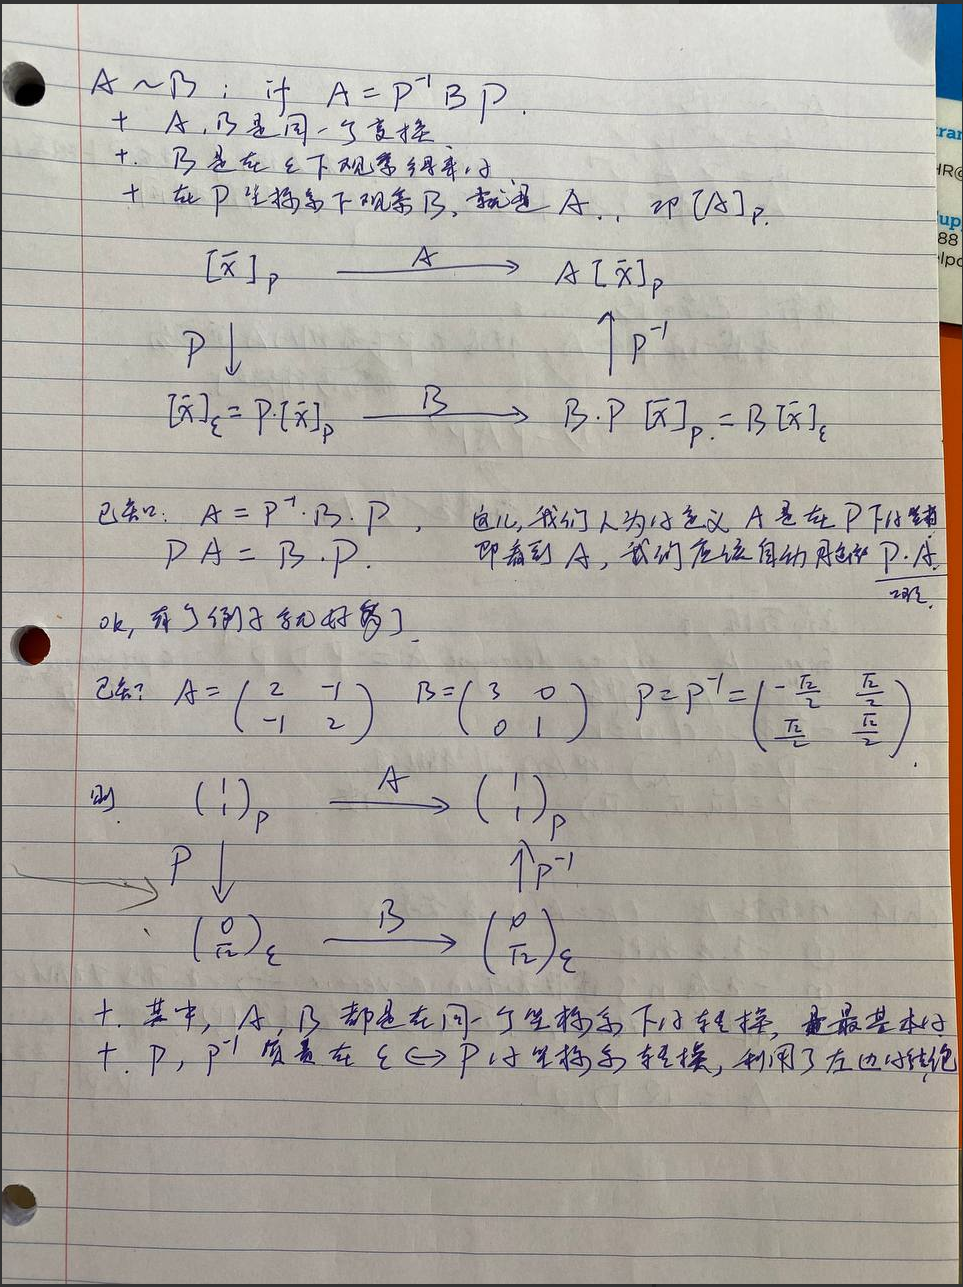 A ~ B ; if A = P⁻¹ B P.
+ A, B 是同一个变换
+. B 是在 ε 下观察得来的
+ 在 P 坐标系下观察 B, 就是 A.. 即 [A]_P.
[x̄]_P —A→ A [x̄]_P
P ↓ ↑ P⁻¹
[x̄]_ε = P·[x̄]_P —B→ B·P [x̄]_P = B [x̄]_ε
已知: A = P⁻¹·B·P, 这儿, 我们人为的定义 A 是在 P 下的
P A = B·P. 即看到 A, 我们应该自动 P·A.
ok, 有个例子就好多了.
已知? A = ( 2 -1 ; -1 2 ) B = ( 3 0 ; 0 1 ) P = P⁻¹ = ( -√2/2 √2/2 ; √2/2 √2/2 ).
则. (1 ; 1)_P —A→ (1 ; 1)_P
P ↓ ↑ P⁻¹
(0 ; √2)_ε —B→ (0 ; √2)_ε
+. 其中, A, B 都是在同一个坐标系下的转换, 最基本的
+. P, P⁻¹ 质是在 ε ⟷ P 的坐标系转换, 利用了左边的
tran
HR@
up
88
elpd